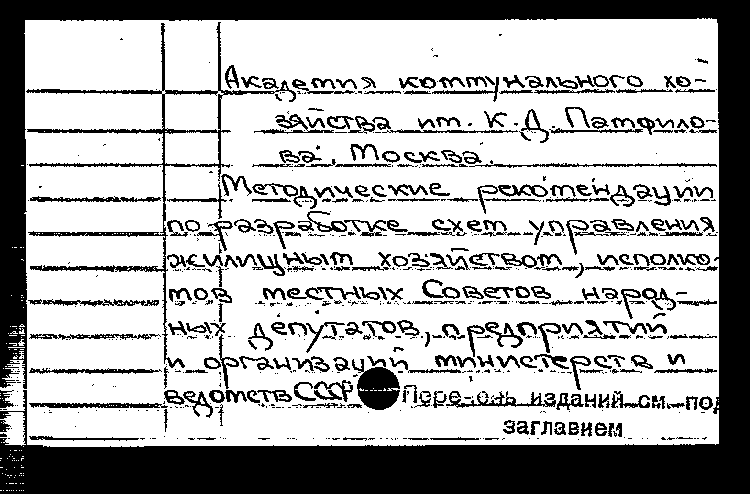 Академия коммунального хо-
зяйства им. К.Д. Памфило-
ва, Москва.
Методические рекомендации
по разработке схем управления
жилищным хозяйством, исполко-
мов местных Советов народ-
ных депутатов, предприятий
и организаций министерств и
ведомств СССР Перечень изданий см. под
заглавием